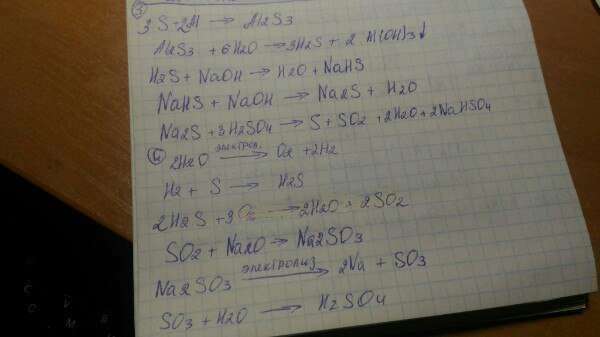 ③
3S+2Al → Al2S3
Al2S3 + 6H2O → 3H2S + 2Al(OH)3↓
H2S + NaOH → H2O + NaHS
NaHS + NaOH → Na2S + H2O
Na2S + 3H2SO4 → S + SO2 + 2H2O + 2NaHSO4
④ 2H2O электрол. → O2 + 2H2
H2 + S → H2S
2H2S + 3O2 → 2H2O + 2SO2
SO2 + Na2O → Na2SO3
Na2SO3 электролиз → 2Na + SO3
SO3 + H2O → H2SO4